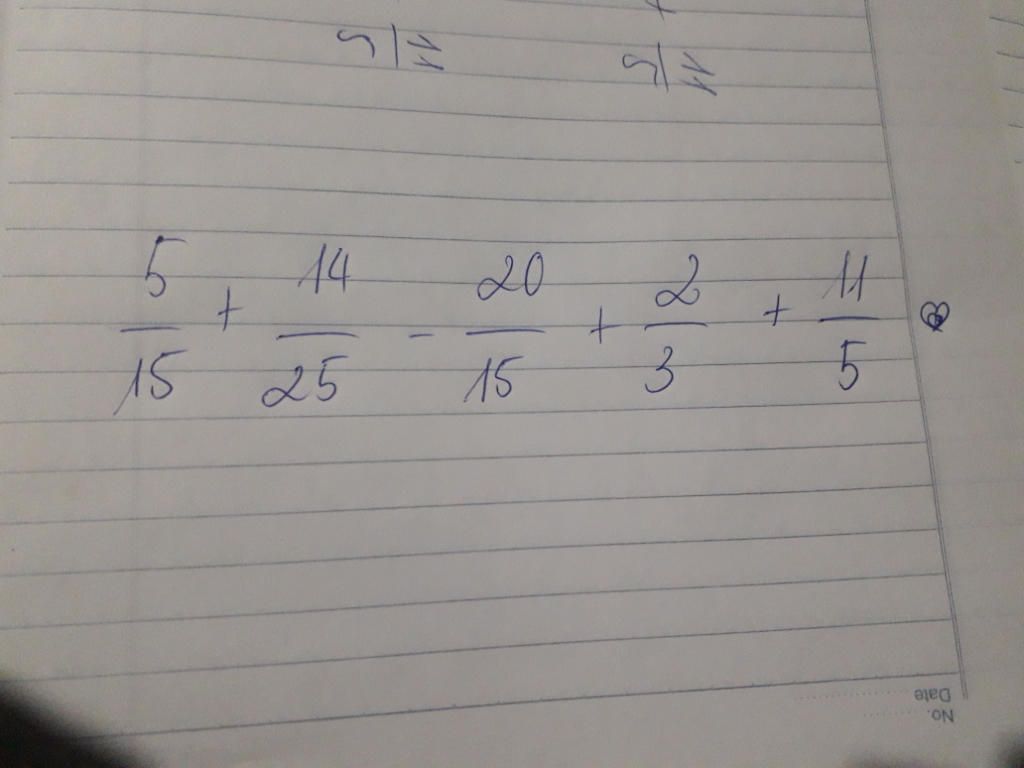 11/5 11/5
5/15 + 14/25 - 20/15 + 2/3 + 11/5
Date
No.